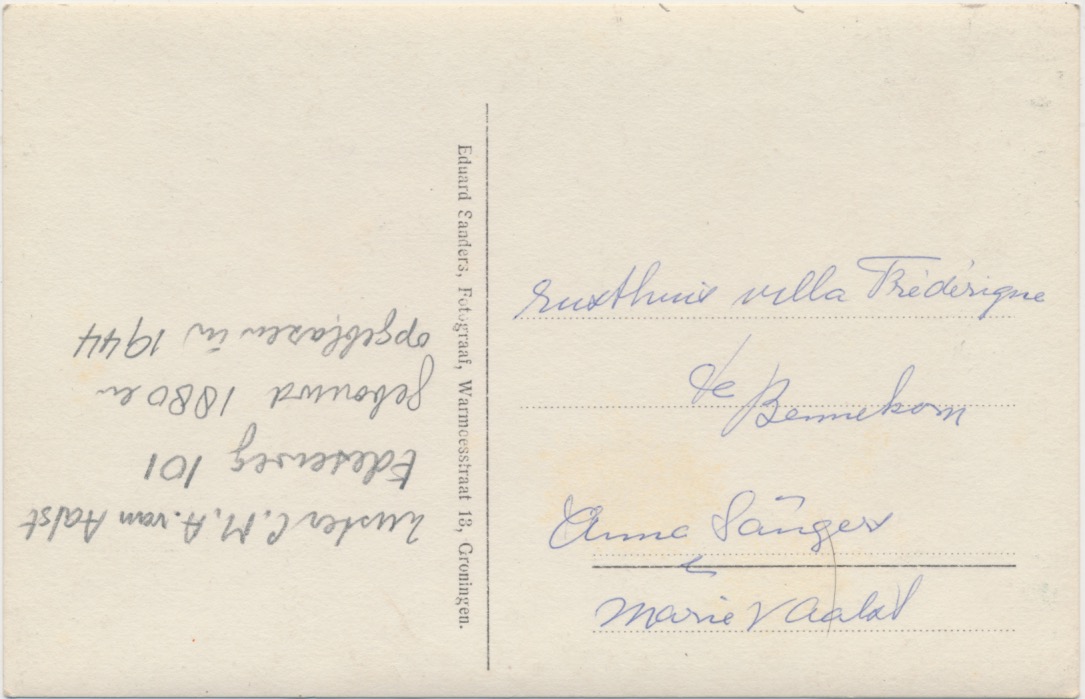 Zuster C. M. A. van Aalst
Edeseweg 101
gebouwd 1880 en
opgeblazen in 1944
Eduard Sanders, Fotograaf, Warmoesstraat 13, Groningen.
rusthuis villa Frédérique
te Bennekom
Anna Sänger
Marie v Aalst